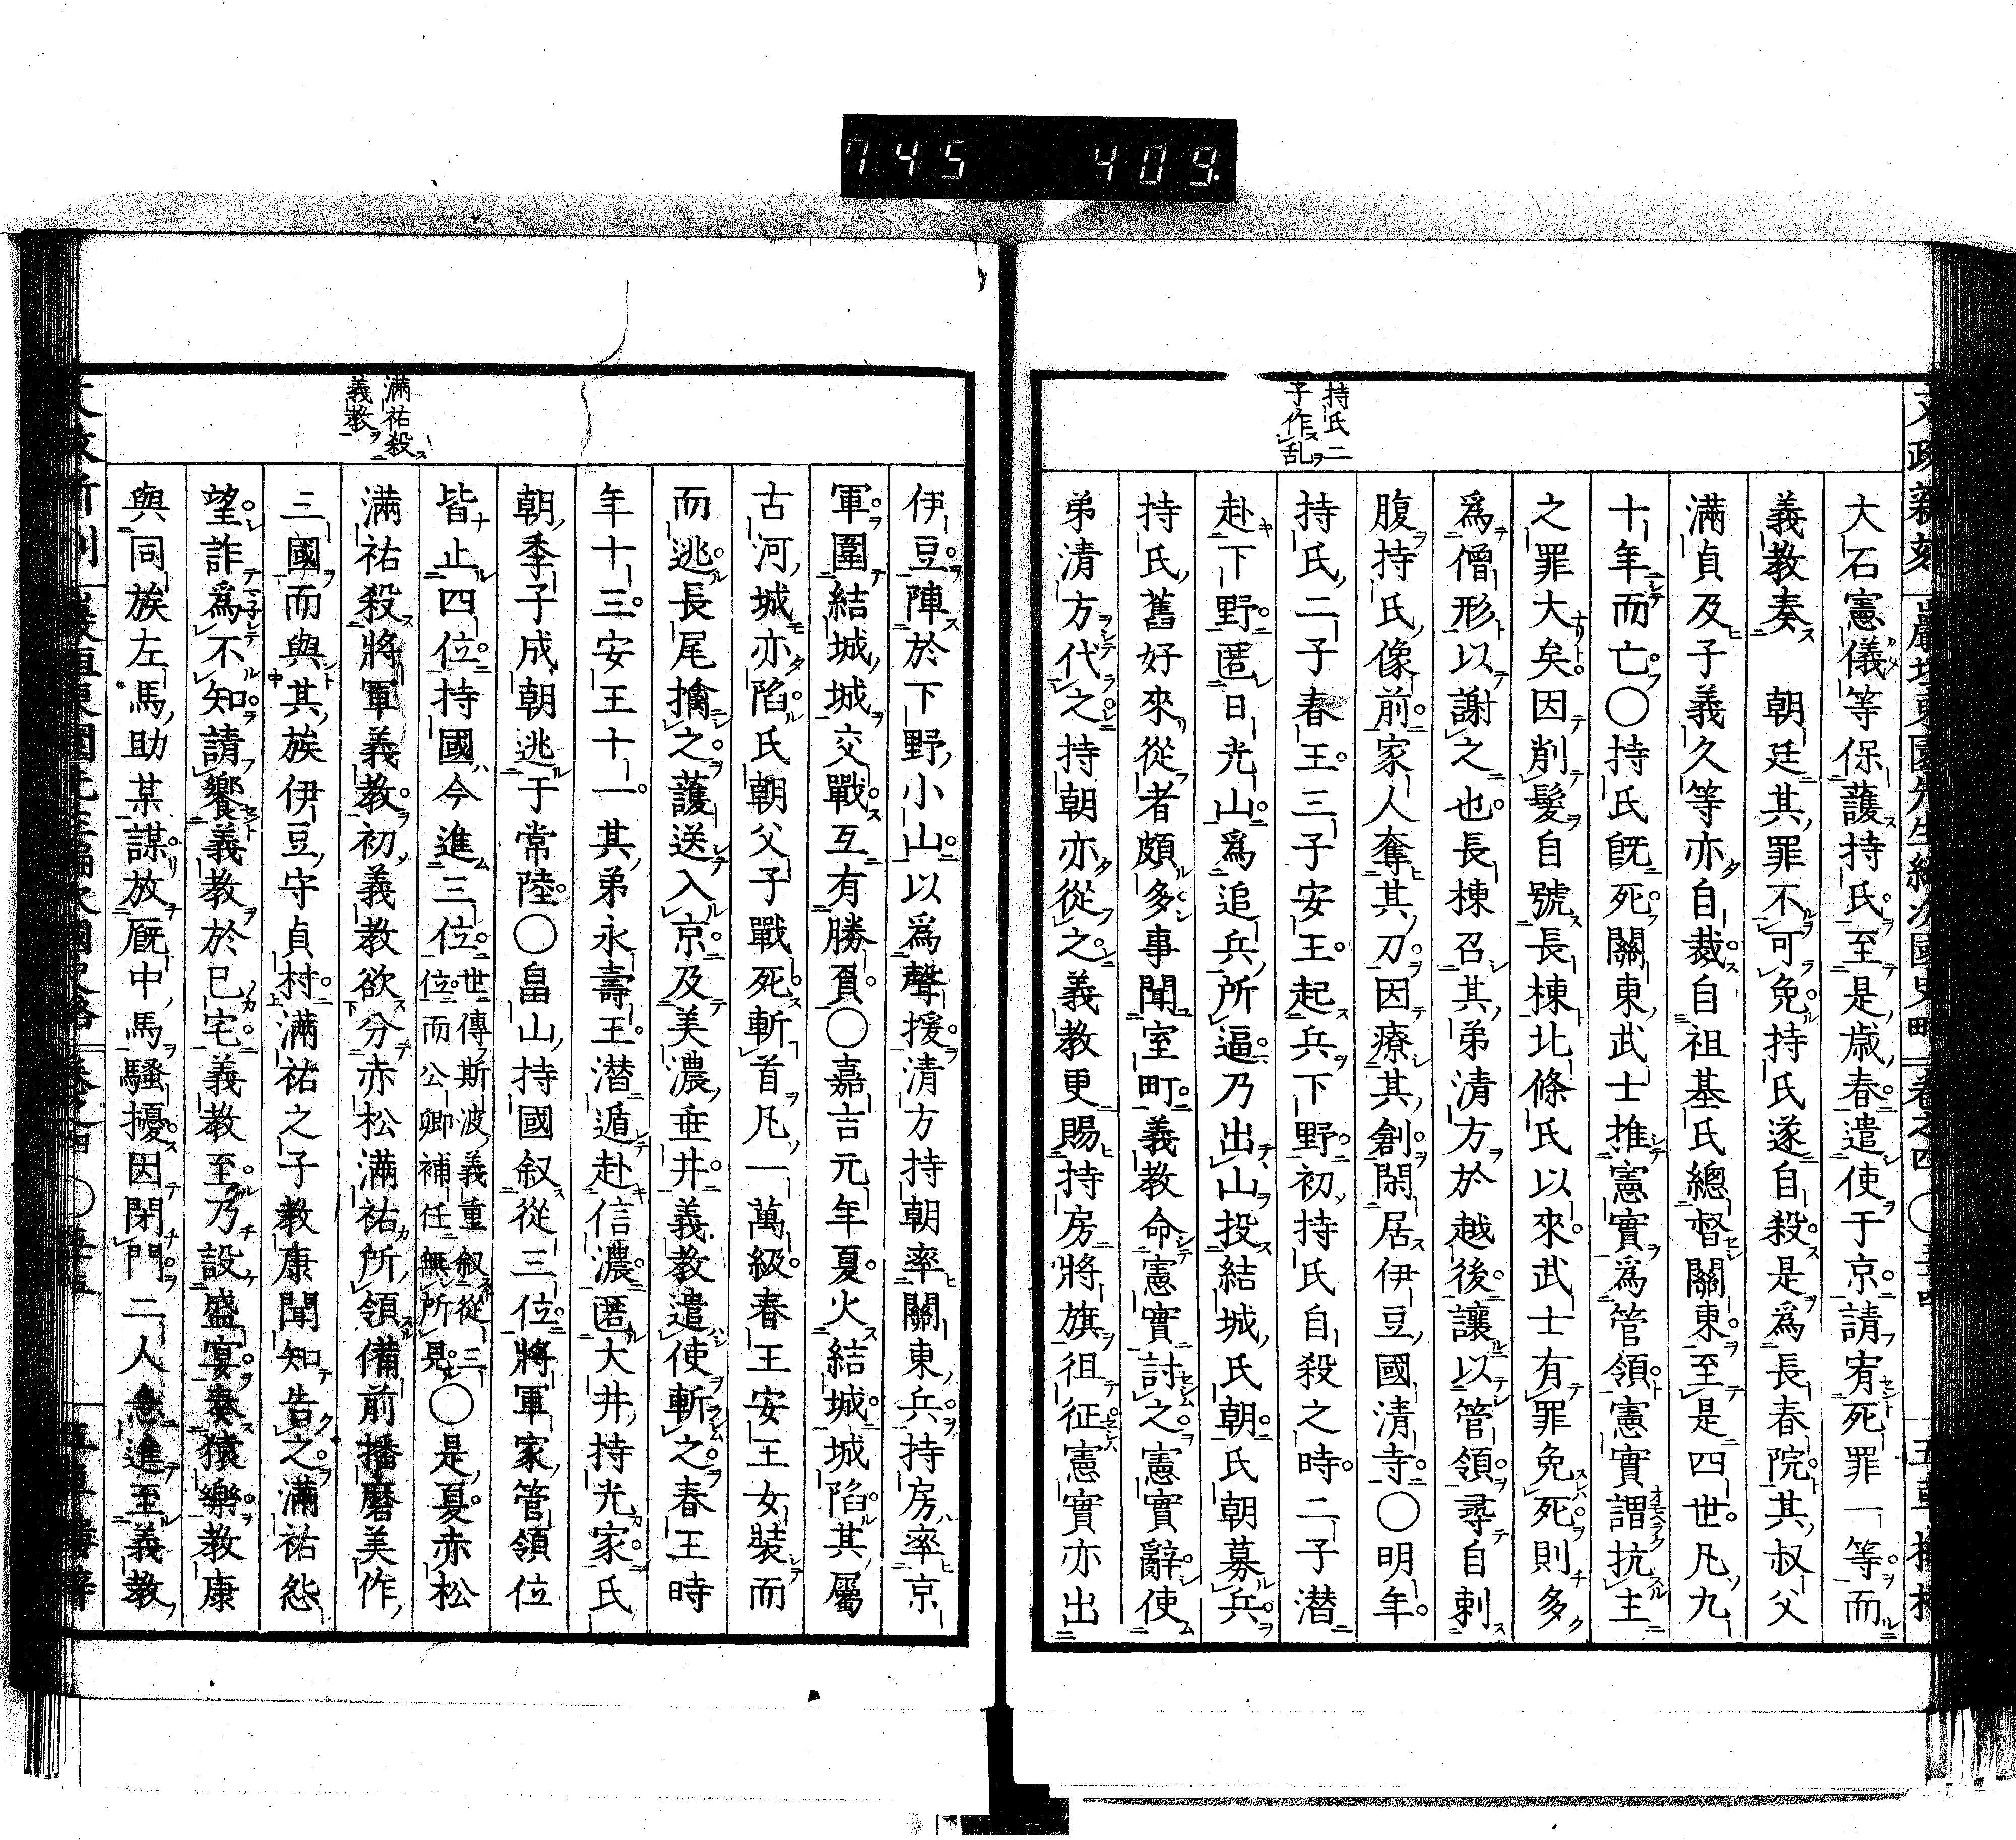 745 409.
持氏二
子作乱
大石憲儀等保護持氏至是歳春遣使于京請宥死罪一等而
義教奏 朝廷其罪不可免持氏遂自殺是爲長春院其叔父
滿貞及子義久等亦自裁自祖基氏總督關東至是四世凡九
十年而亡○持氏旣死關東武士推憲實爲管領憲實謂抗主
之罪大矣因削髮自號長棟北條氏以來武士有罪免死則多
爲僧形以謝之也長棟召其弟清方於越後讓以管領尋自刺
腹持氏像前家人奪其刀因療其創閑居伊豆國清寺○明年
持氏二子春王三子安王起兵下野初持氏自殺之時二子潜
赴下野匿日光山爲追兵所逼乃出山投結城氏朝氏朝募兵
持氏舊好來從者頗多事聞室町義教命憲實討之憲實辭使
弟清方代之持朝亦從之義教更賜持房將旗徂征憲實亦出
滿祐殺
義教
伊豆陣於下野小山以爲聲援清方持朝率關東兵持房率京
軍圍結城城交戰互有勝負○嘉吉元年夏火結城城陷其屬
古河城亦陷氏朝父子戰死斬首凡一萬級春王安王女裝而
而逃長尾擒之護送入京及美濃垂井義教遣使斬之春王時
年十三安王十一其弟永壽王潜遁赴信濃匿大井持光家氏
朝季子成朝逃于常陸○畠山持國叙從三位將軍家管領位
皆止四位持國今進三位世傳斯波義重叙從三
位而公卿補任無所見○是夏赤松
滿祐殺將軍義教初義教欲分赤松滿祐所領備前播磨美作
三國而與其族伊豆守貞村滿祐之子教康聞知告之滿祐怨
望詐爲不知請饗義教於已宅義教至乃設盛宴奏猿樂教康
與同族左馬助某謀放厩中馬騷擾因閉門二人急進至義教